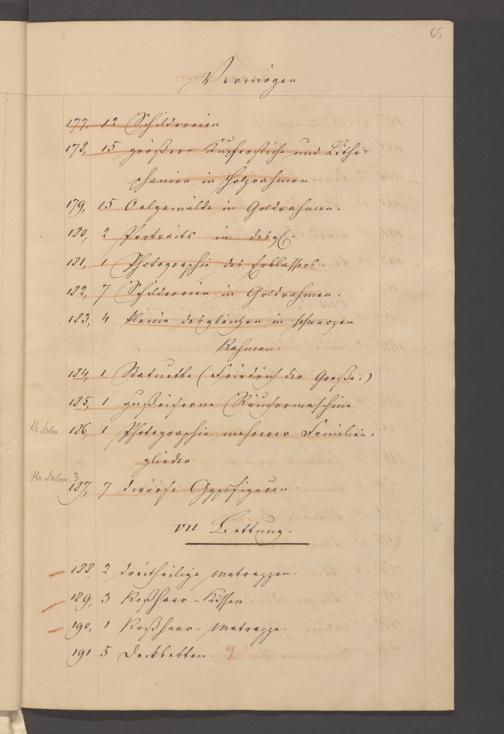 65
Vermögen
177, 12 Schildereien
178, 15 größere Kupferstiche und Litho-
phanien in Holzrahmen.
179, 15 Oelgemälde in Goldrahmen.
180, 2 Portraits in desgl.
181, 1 Photographie des Erblassers.
182, 7 Schildereien in Goldrahmen.
183, 4 kleine desgleichen in schwarzen
Rahmen.
184, 1 Statuette (Friedrich der Große.)
185, 1 gußeiserne Räuchermaschine
186, 1 Photographie mehrerer Familien-
glieder
187, 7 diverse Gypsfiguren.
VII Bettung.
188, 2 dreitheilige Matrazzen.
189, 3 Roßhaar-Kissen
190, 1 Roßhaar-Matrazze.
191 5 Deckbetten.